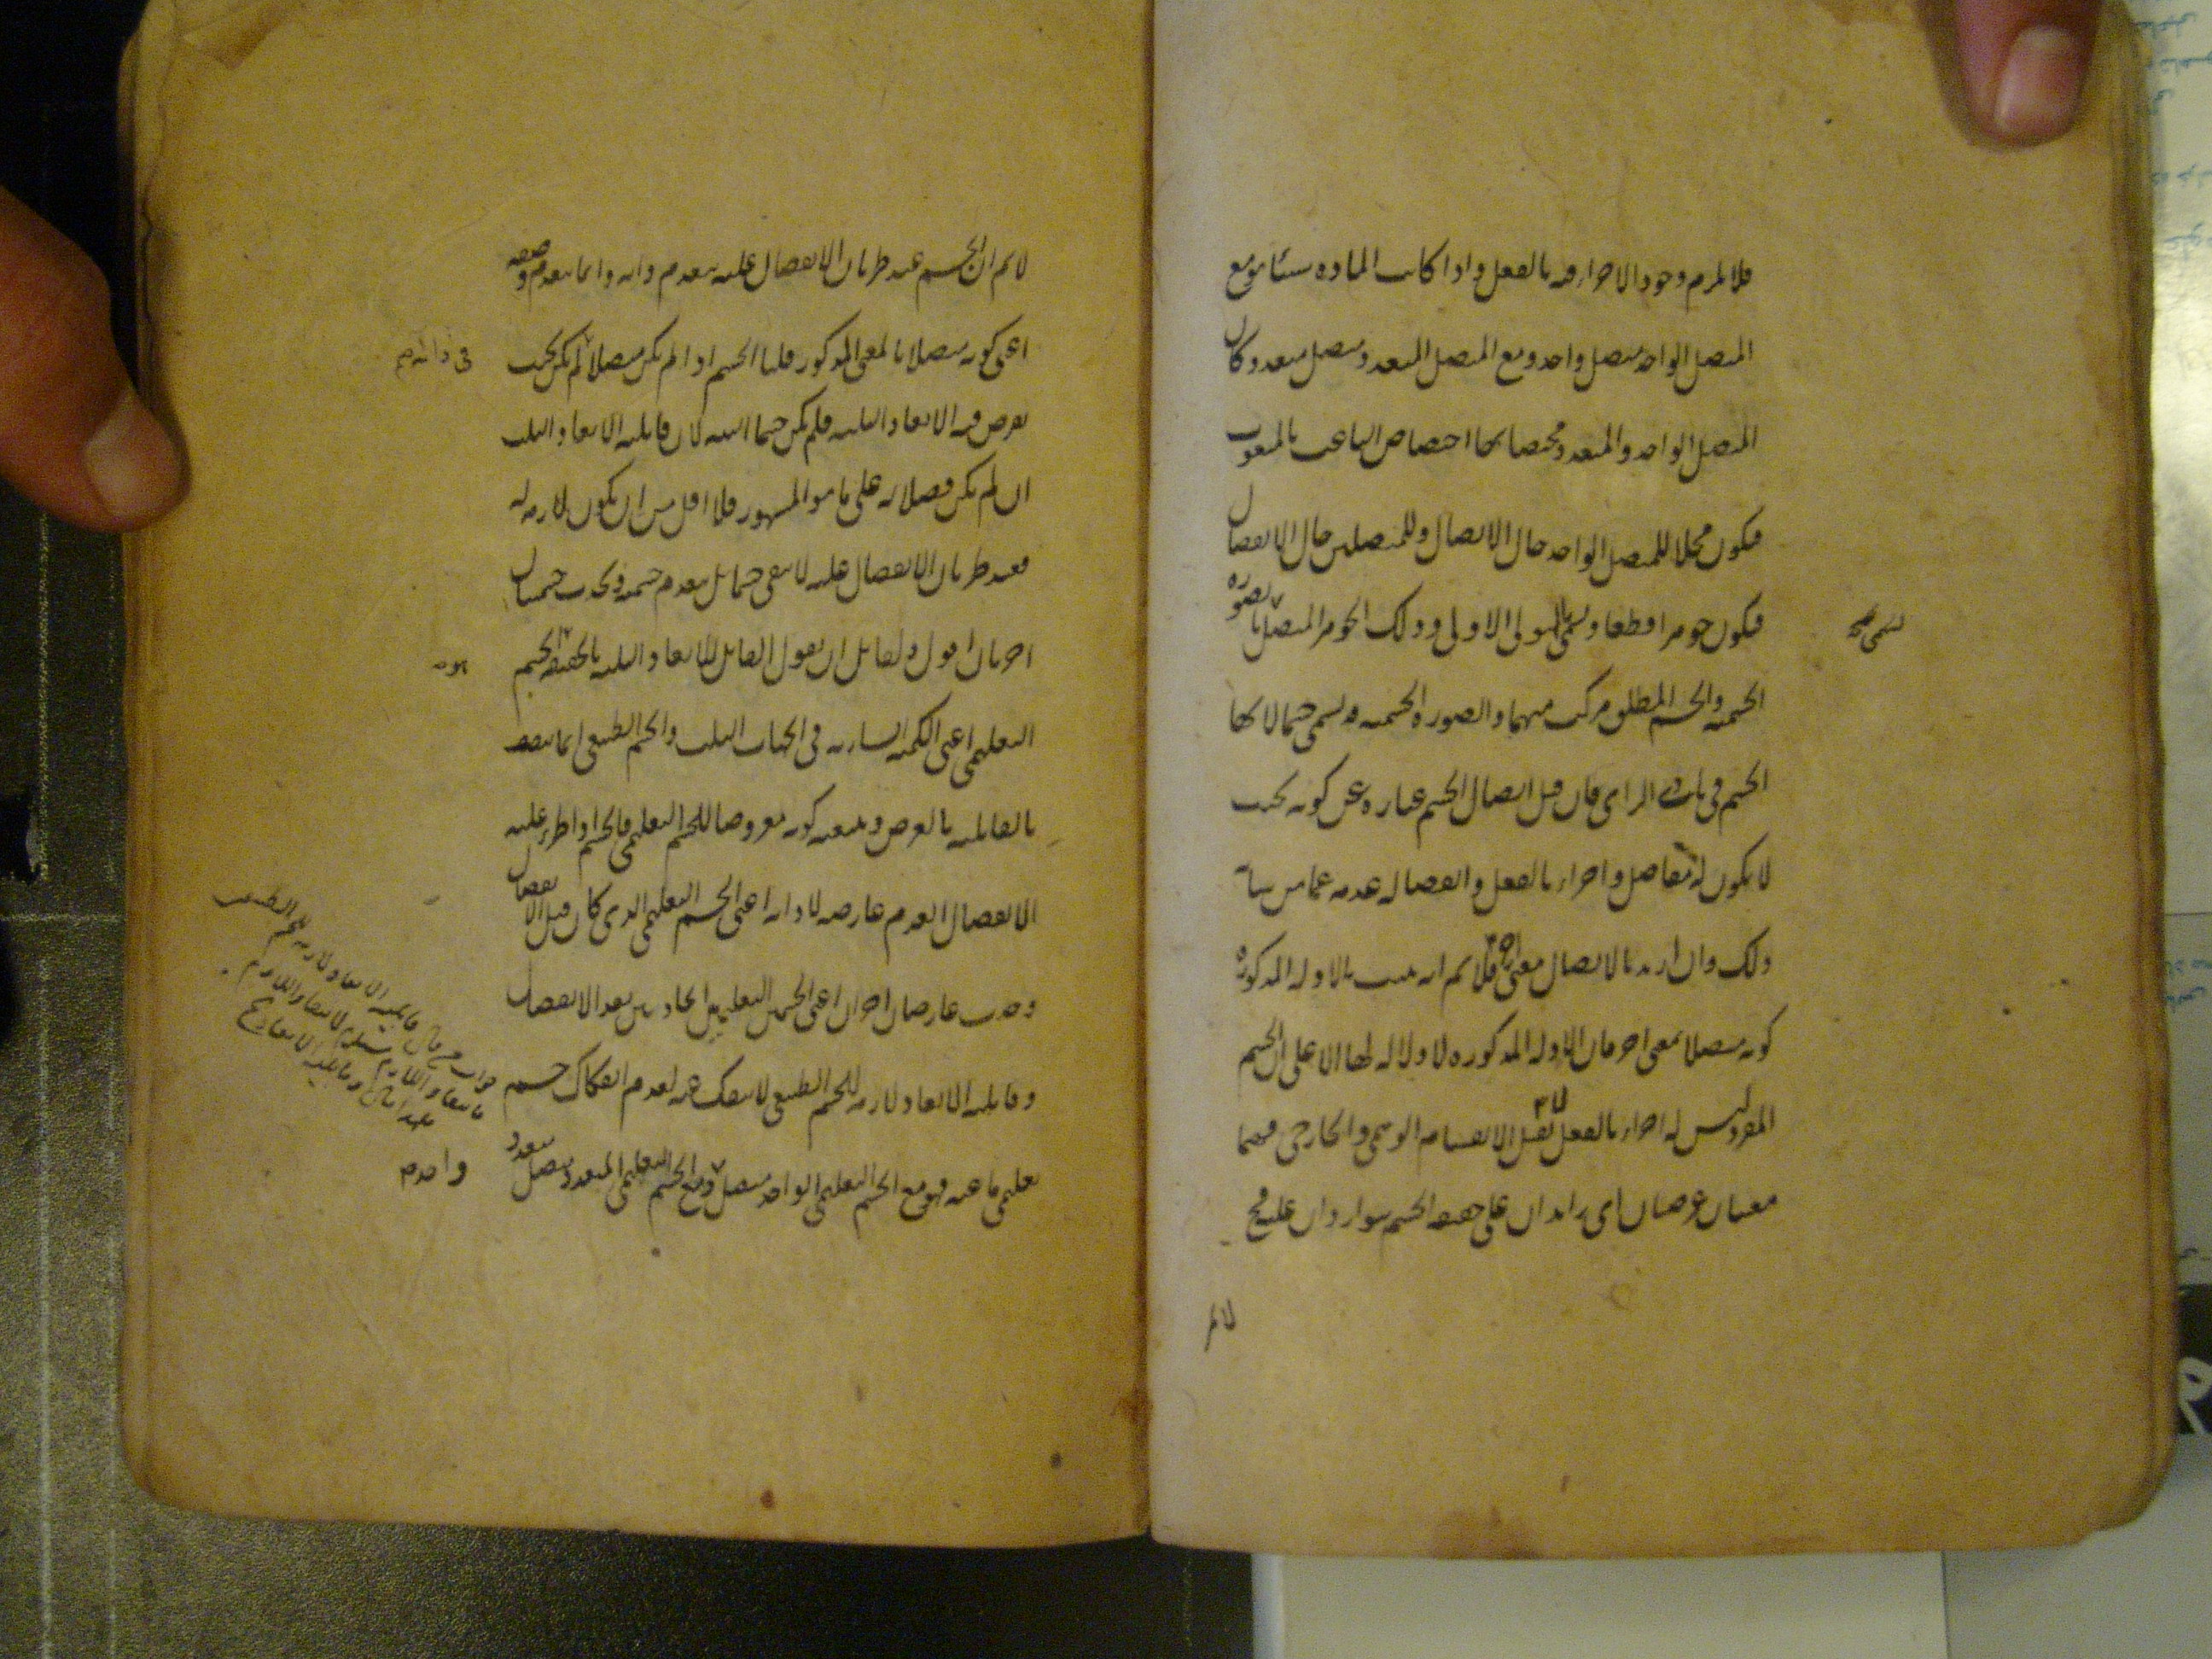 فلا يلزم وجود الاجزاء فيه بالفعل واذا كانت المادة شيئا هو مع
المتصل الواحد متصل واحد ومع المتصل المتعدد متصل متعدد كان
المتصل الواحد والمتعدد مختصا بها اختصاص الناعت بالمنعوت
فيكون محلا للمتصل الواحد حال الاتصال وللمتصلين حال الانفصال
فيكون جوهرا قطعا ويسمى الهيولى الاولى وذلك الجوهر المتصل بالصورة
الجسمية والجسم المطلق مركب منهما والصورة الجسمية قد يسمى جسما لانها
الجسم في بادئ الراى فان قيل اتصال الجسم عبارة عن كونه بحيث
لا يكون له مفاصل واجزاء بالفعل وانفصاله عدمه عما من شانه
ذلك وان اريد بالاتصال معنى اخر فلا نم انه يثبت بالادلة المذكورة
كونه متصلا بمعنى اخر فان الادلة المذكورة لا دلالة لها الا على ان الجسم
المفرد ليس له اجزاء بالفعل لانه يقبل الانقسام الوهمي والخارجي فهما
معنيان عرضيان اى زايدان على حقيقة الجسم يتواردان عليه فح
لا نم
لا نم ان الجسم عند طريان الانفصال عليه ينعدم ذاته وانما ينعدم وصفه
اعنى كونه متصلا بالمعنى المذكور قلنا الجسم اذا لم يكن متصلا لم يكن بحيث
يفرض فيه الابعاد الثلثة فلم يكن جسما البتة لان قابلية الابعاد الثلثة
ان لم يكن فصلا له على ما هو المشهور فلا اقل من ان يكون لازمة له
فعند طريان الانفصال عليه لا يبقى جسما بل ينعدم جسمية ويحدث جسميتان
اخريان اقول ولقايل ان يقول القابل للابعاد الثلثة بالحقيقة الجسم
التعليمي اعنى الكمية السارية في الجهات الثلث والجسم الطبيعي انما يتصف
بالقابلية بالعرض وبتبعية كونه معروضا للجسم التعليمي فالجسم اذا طرء عليه
الانفصال انعدم عارضه لا ذاته اعنى الجسم التعليمي الذي كان قبل الانفصال
وحدث عارضان اخران اعنى الجسمين التعليميين الحادثين بعد الانفصال
وقابلية الابعاد لازمة للجسم الطبيعي لا ينفك عنه لعدم انفكاك جسم
تعليمي ما عنه فهو مع الجسم التعليمي الواحد متصل ومع الجسم التعليمي المتعدد متصل متعدد
واحد